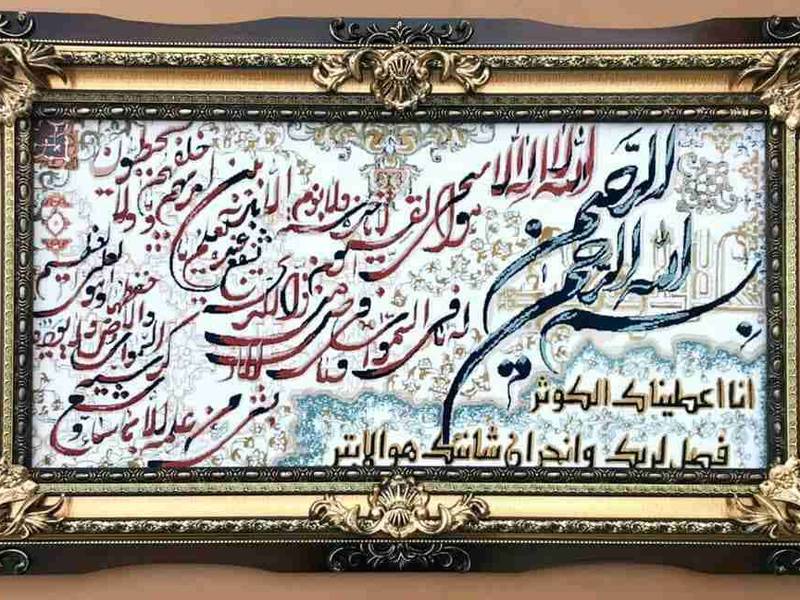 بسم الله الرحمن الرحيم
الله لا اله الا هو الحى القيوم لا تاخذه سنة ولا نوم
له ما فى السموات وما فى الارض من ذا الذى يشفع عنده الا باذنه يعلم ما بين ايديهم وما خلفهم ولا يحيطون
بشىء من علمه الا بما شاء وسع كرسيه السموات والارض ولا يؤده حفظهما وهو العلى العظيم
انا اعطیناک الکوثر
فصل لربک وانحر ان شانئک هو الابتر